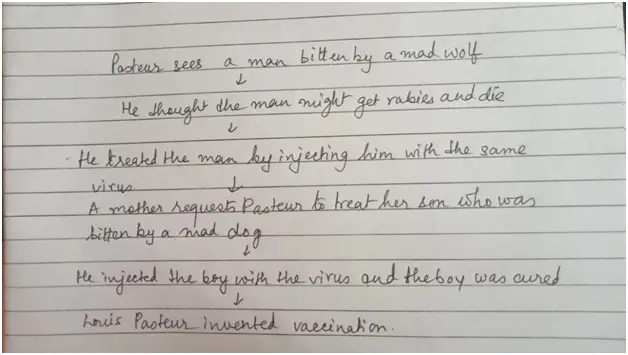 Pasteur sees a man bitten by a mad wolf
↓
He thought the man might get rabies and die
↓
He treated the man by injecting him with the same
virus
↓
A mother requests Pasteur to treat her son who was
bitten by a mad dog
↓
He injected the boy with the virus and the boy was cured
↓
Louis Pasteur invented vaccination.